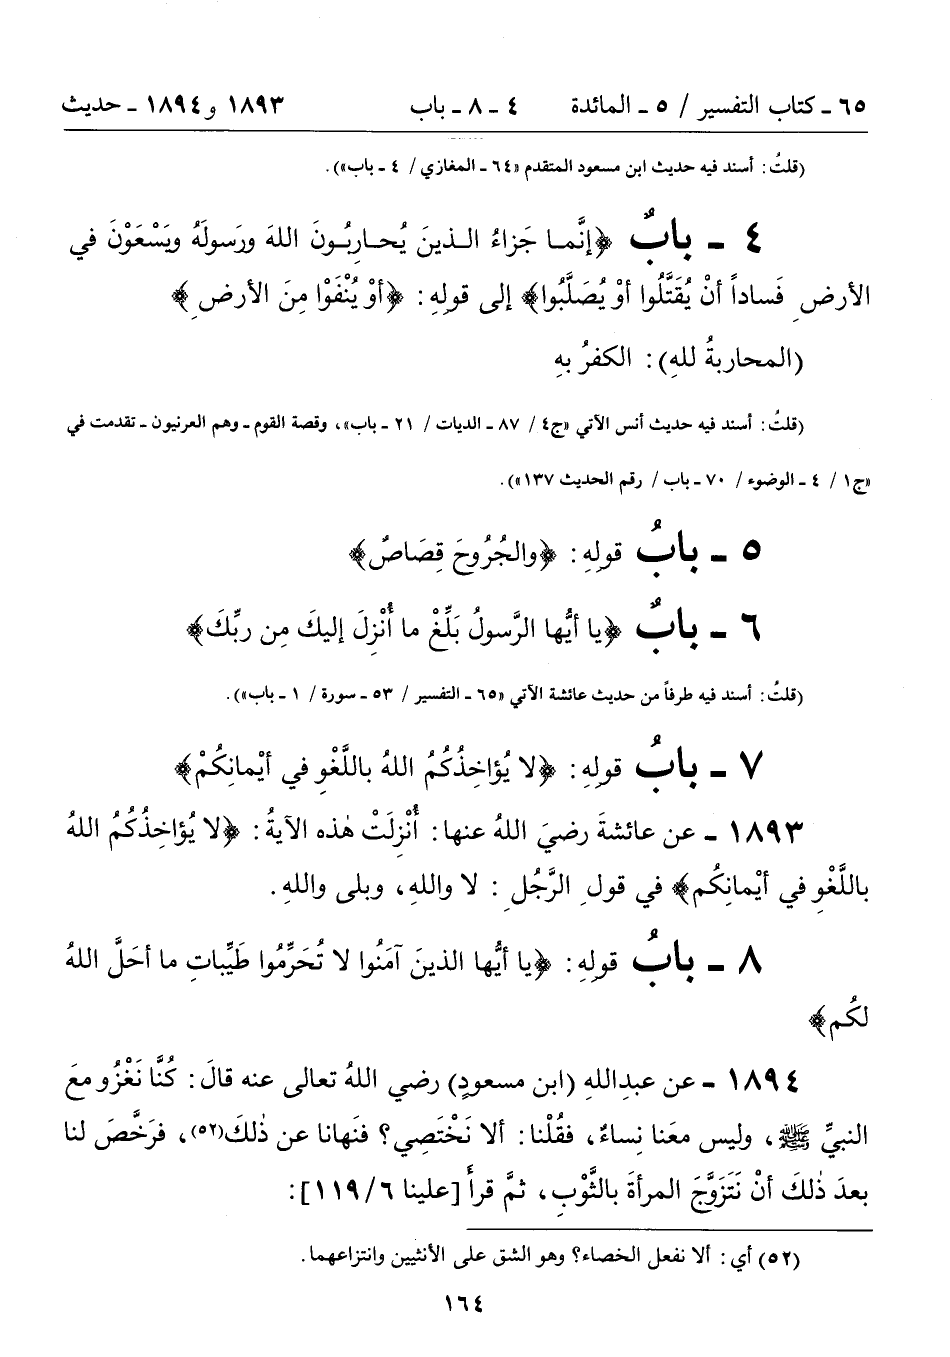 ٦٥ ـ كتاب التفسير / ٥ ـ المائدة ٤ ـ ٨ ـ باب ١٨٩٣ و١٨٩٤ ـ حديث
(قلتُ: أسند فيه حديث ابن مسعود المتقدم «٦٤ ـ المغازي / ٤ ـ باب»).
٤ ـ بابٌ ﴿إنَّما جَزاءُ الذينَ يُحارِبُونَ اللهَ ورَسولَهُ ويَسْعَوْنَ في
الأرضِ فَساداً أنْ يُقَتَّلُوا أوْ يُصَلَّبُوا﴾ إلى قولِهِ: ﴿أوْ يُنْفَوْا مِنَ الأرضِ﴾
(المحاربةُ للهِ): الكفرُ بهِ
(قلتُ: أسند فيه حديث أنس الآتي «ج٤ / ٨٧ ـ الديات / ٢١ ـ باب»، وقصة القوم ـ وهم العرنيون ـ تقدمت في
«ج١ / ٤ ـ الوضوء / ٧٠ ـ باب / رقم الحديث ١٣٧»).
٥ ـ بابُ قولِهِ: ﴿والجُرُوحَ قِصَاصٌ﴾
٦ ـ بابٌ ﴿يا أيُّها الرَّسولُ بَلِّغْ ما أُنْزِلَ إليكَ مِن ربِّكَ﴾
(قلتُ: أسند فيه طرفاً من حديث عائشة الآتي «٦٥ ـ التفسير / ٥٣ ـ سورة / ١ ـ باب»).
٧ ـ بابُ قولِهِ: ﴿لا يُؤاخِذُكُمُ اللهُ باللَّغْوِ في أيْمانِكُمْ﴾
١٨٩٣ ـ عن عائشةَ رضيَ اللهُ عنها: أُنْزِلَتْ هٰذه الآيةُ: ﴿لا يُؤاخِذُكُمُ اللهُ
باللَّغْوِ في أيْمانِكُم﴾ في قولِ الرَّجُلِ: لا واللهِ، وبلى واللهِ.
٨ ـ بابُ قولِهِ: ﴿يا أيُّها الذينَ آمَنُوا لا تُحَرِّمُوا طَيِّباتِ ما أحَلَّ اللهُ
لكُم﴾
١٨٩٤ ـ عن عبدِاللهِ (ابن مسعودٍ) رضي اللهُ تعالى عنه قالَ: كُنَّا نَغْزُو معَ
النبيِّ ﷺ، وليس معَنا نِساءٌ، فقُلْنا: ألا نَخْتَصِي؟ فنَهانا عن ذٰلكَ(٥٢)، فرَخَّصَ لنا
بعدَ ذٰلكَ أنْ نَتَزَوَّجَ المرأةَ بالثَّوْبِ، ثمَّ قرأَ [علينا ٦/١١٩]:
(٥٢) أي: ألا نفعل الخصاء؟ وهو الشق على الأنثيين وانتزاعهما.
١٦٤